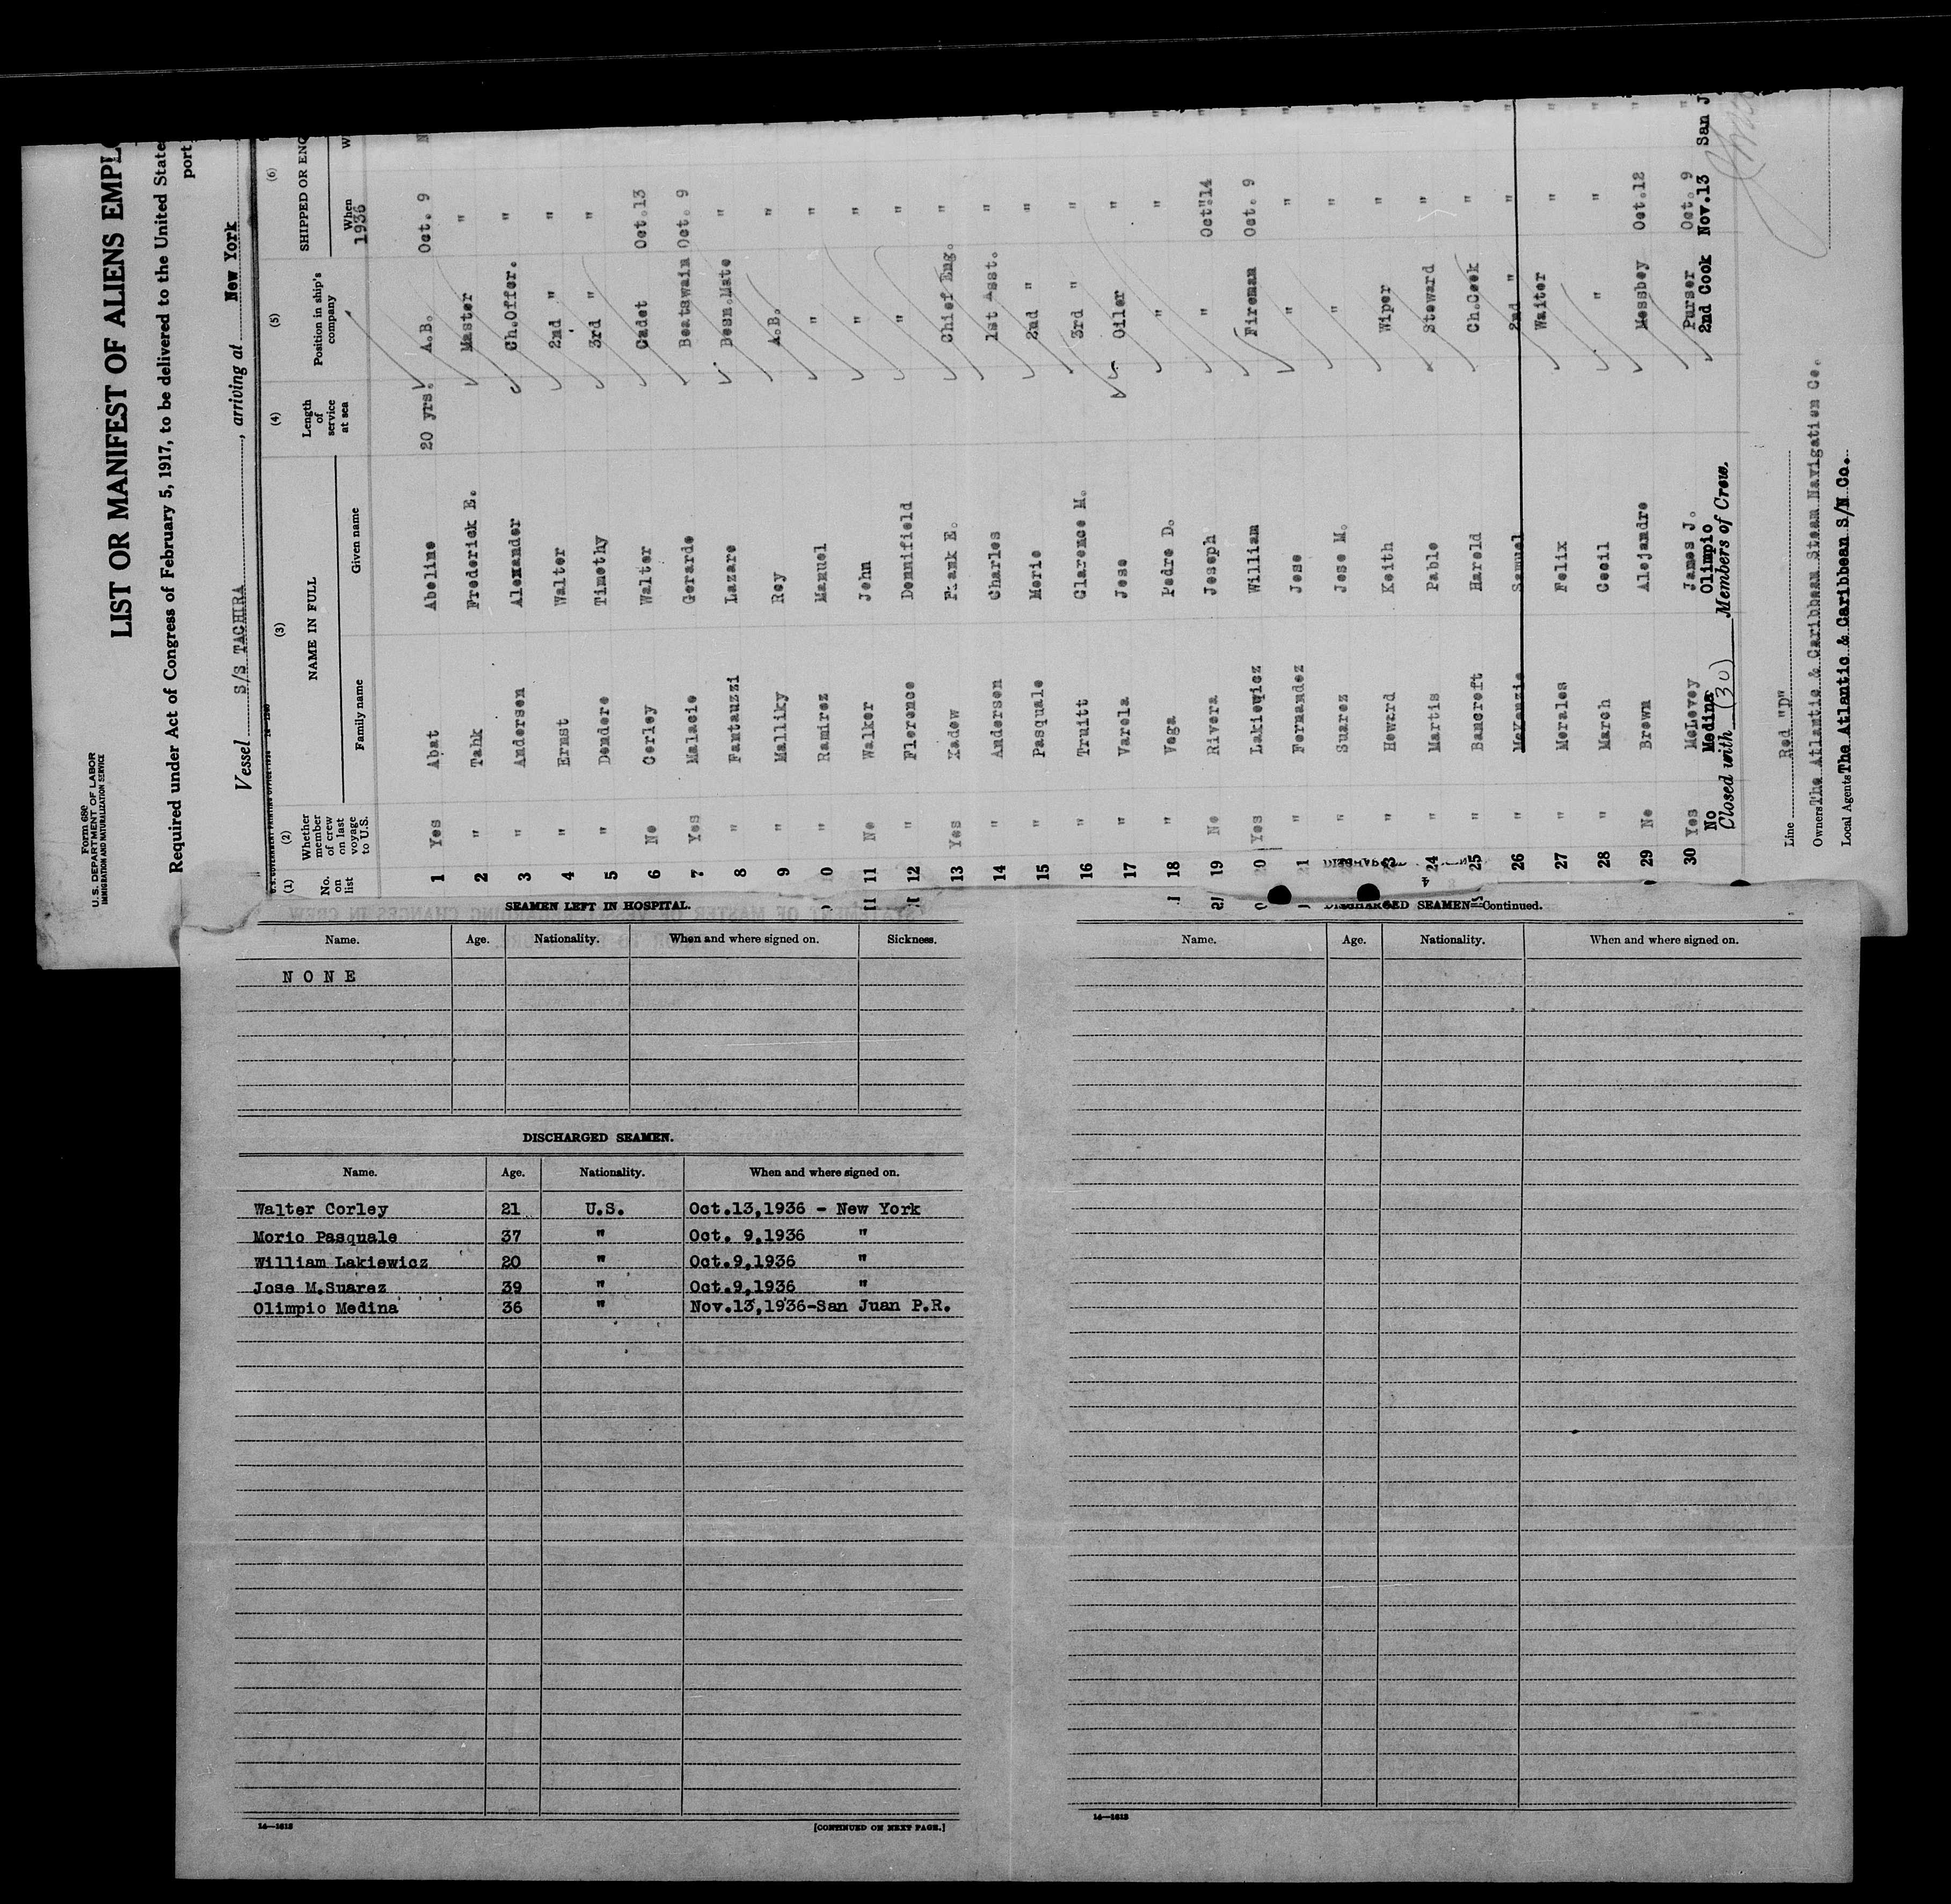 Form 680
U.S. DEPARTMENT OF LABOR
IMMIGRATION AND NATURALIZATION SERVICE
LIST OR MANIFEST OF ALIENS
Required under Act of Congress of February 5, 1917, to be delivered to the United
port
Vessel S/S TACHIRA, arriving at New York
(1) (2) (3) (4) (5) (6)
No. on list Whether member of crew on last voyage to U.S. NAME IN FULL Length of service at sea Position in ship's company SHIPPED OR
Family name Given name When
1936
1 Yes Abat Abeline 20 yrs. A.B. Oct. 9
2 " Tahk Frederick E. Master "
3 " Andersen Alexander Ch.Offer. "
4 " Ernst Walter 2nd " "
5 " Dendere Timethy 3rd " "
6 No Corley Walter Cadet Oct.13
7 Yes Malacie Gerarde Beatswain Oct. 9
8 " Fantauzzi Lazare Besn.Mate "
9 " Malliky Roy A.B. "
0 " Ramirez Manuel " "
11 No Walker John " "
12 " Flerence Dennifield " "
13 Yes Kadew Frank E. Chief Eng. "
14 " Andersen Charles 1st Asst. "
15 " Pasquale Merie 2nd " "
16 " Truitt Clarence M. 3rd " "
17 " Varela Jose Oiler "
18 " Vega Pedre D. " "
19 No Rivera Joseph " Oct"14
20 Yes Lakiewicz William Fireman Oct. 9
21 " Fernandez Jose " "
" Suarez Jose M. " "
23 " Howard Keith Wiper "
24 " Martis Pable Steward "
25 " Bancreft Hareld Ch.Cook "
26 " McKenzie Samuel 2nd " "
27 " Merales Felix Waiter "
28 " March Cecil " "
29 No Brewn Alejandre Messbey Oct.12
30 Yes McLevey James J. Purser Oct. 9
No Medina Olimpio 2nd Cook Nov.13 San J
Closed with (30) Members of Crew.
Line Red "D"
Owners The Atlantic & Caribbean Steam Navigation Co.
Local Agents The Atlantic & Caribbean S/N Co.
SEAMEN LEFT IN HOSPITAL.
Name. Age. Nationality. When and where signed on. Sickness.
N O N E
DISCHARGED SEAMEN.
Name. Age. Nationality. When and where signed on.
Walter Corley 21 U.S. Oct.13,1936 - New York
Morio Pasquale 37 " Oct. 9,1936 "
William Lakiewicz 20 " Oct.9,1936 "
Jose M.Suarez 39 " Oct.9,1936 "
Olimpio Medina 36 " Nov.13,1936-San Juan P.R.
14—1613
[CONTINUED ON NEXT PAGE.]
DISCHARGED SEAMEN—Continued.
Name. Age. Nationality. When and where signed on.
14—1613